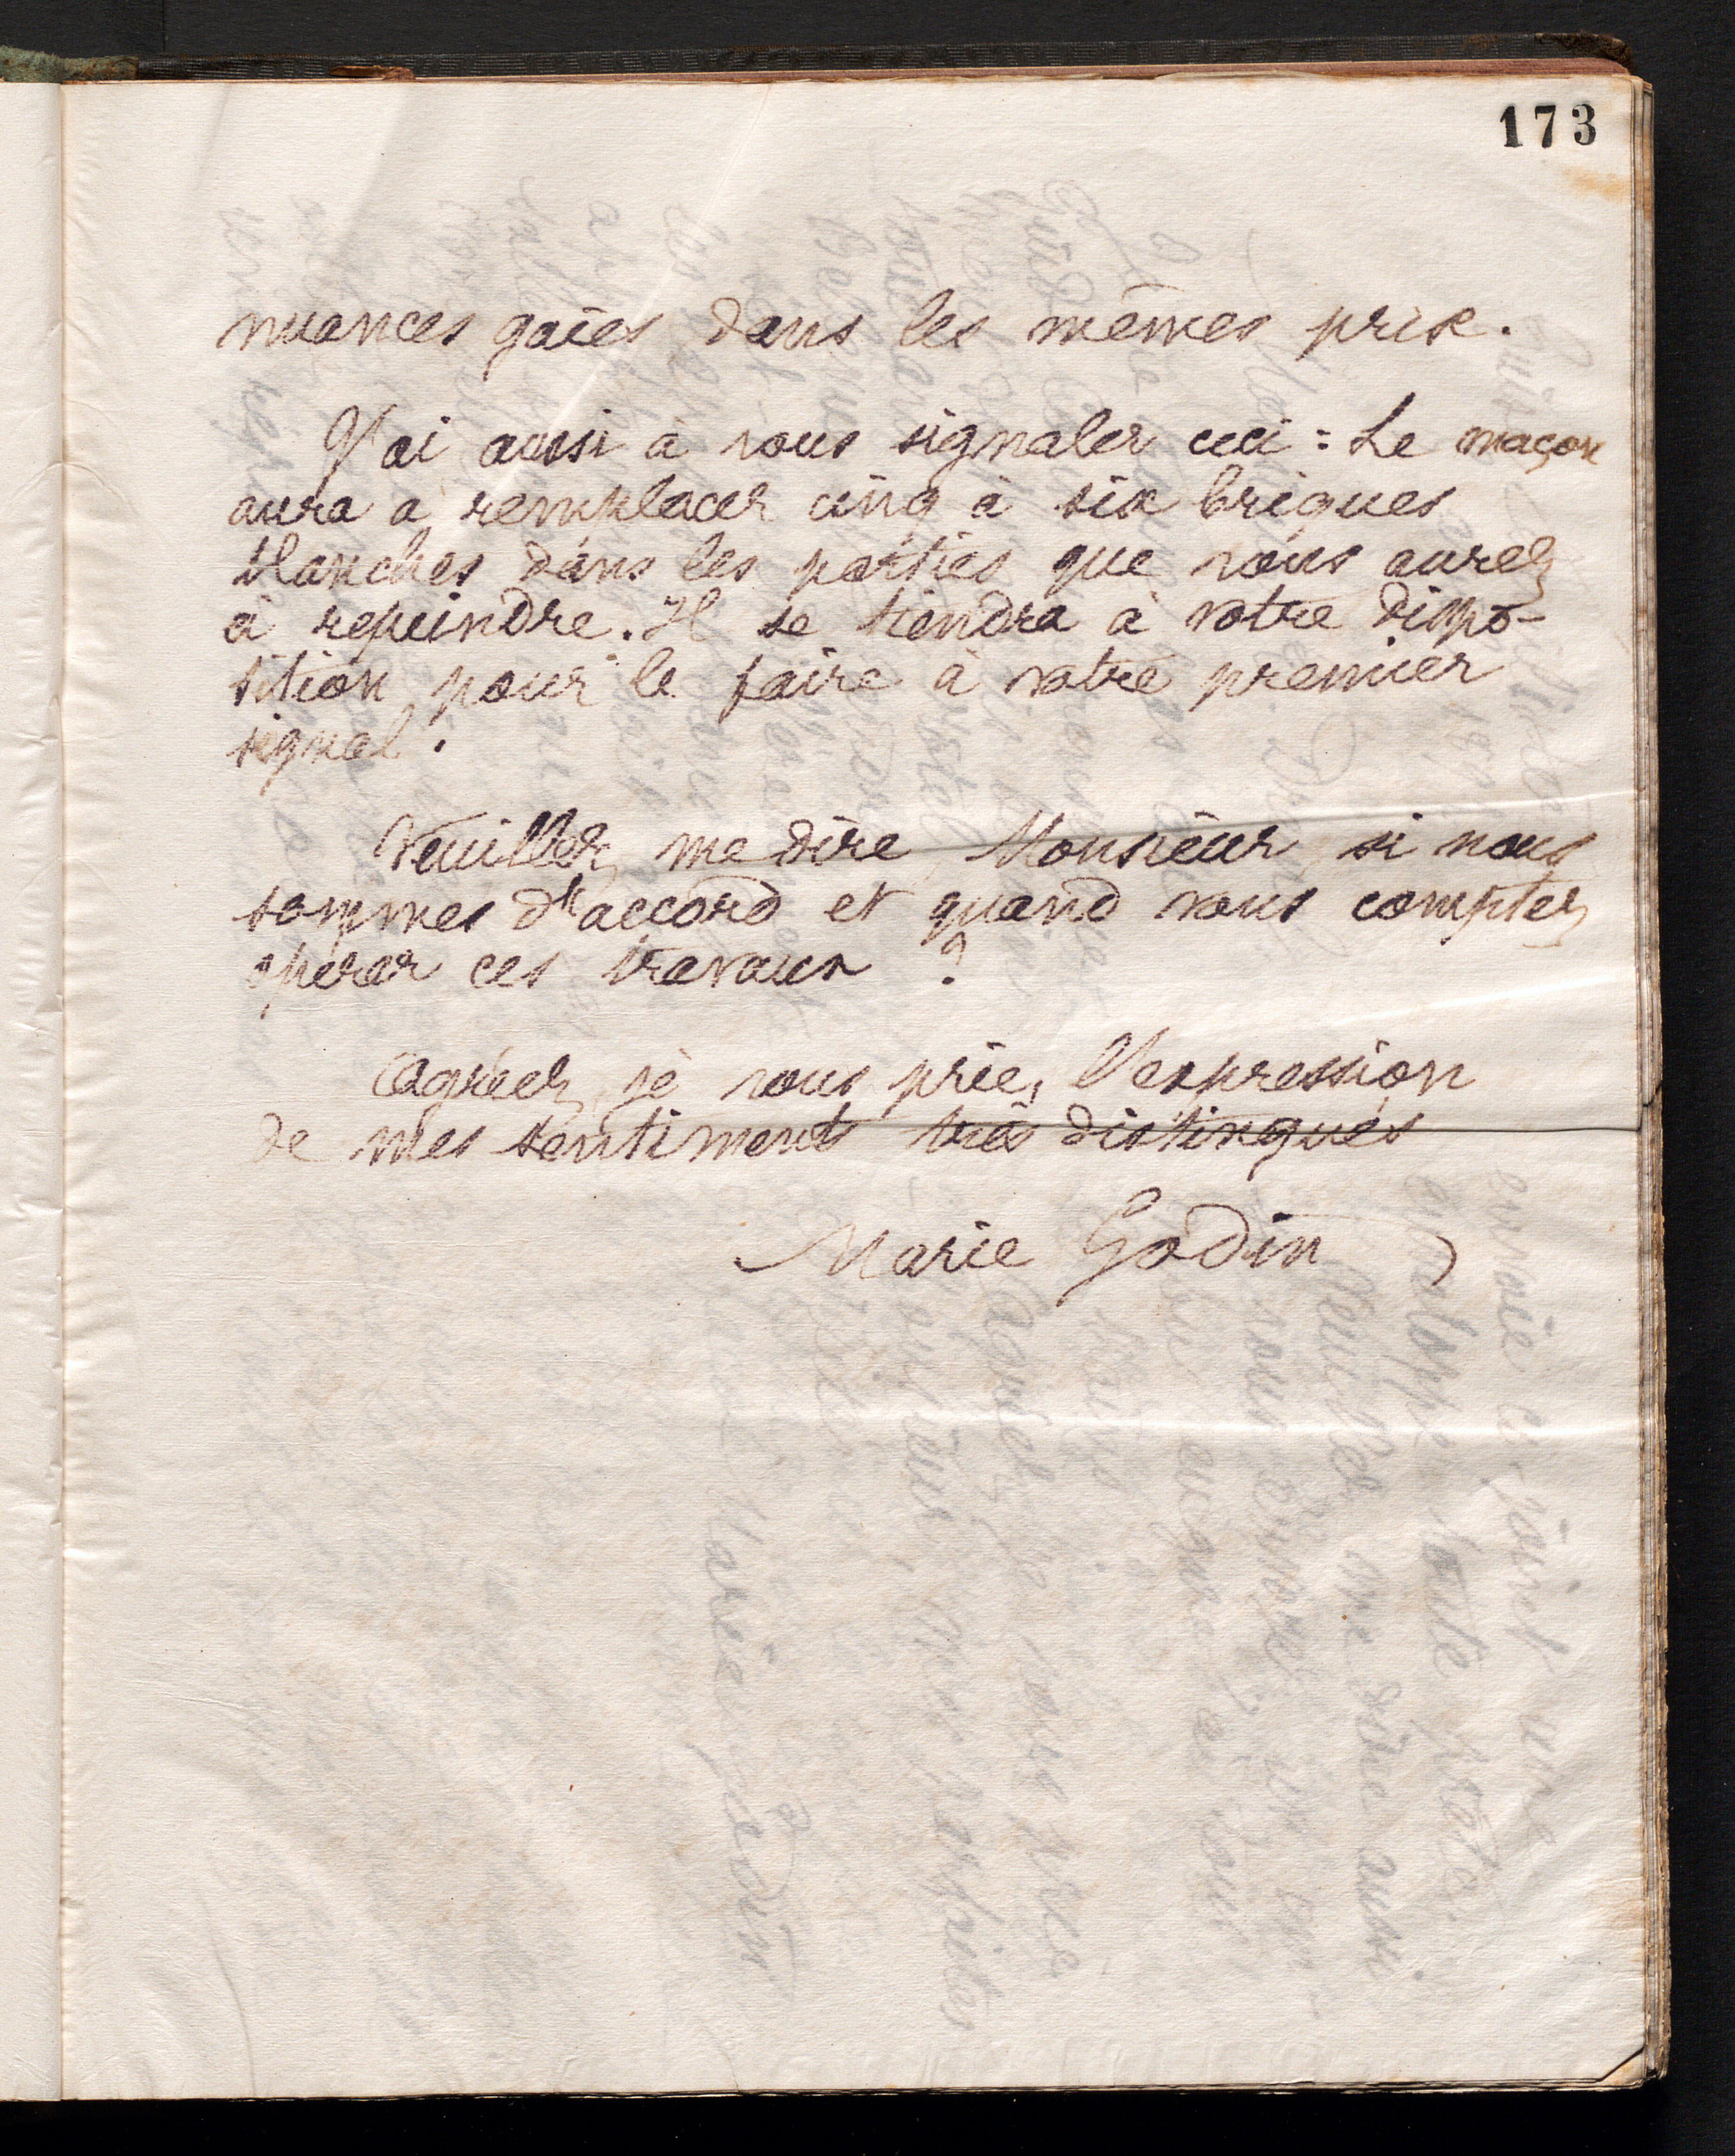 173
nuances gaies dans les mêmes prix.
J'ai aussi à vous signaler ceci : Le maçon
aura à remplacer cinq à six briques
blanches dans les parties que vous aurez
à repeindre. Il se tiendra à votre dispo-
sition pour le faire à votre premier
signal.
Veuillez me dire, Monsieur, si nous
sommes d'accord et quand vous comptez
opérer ces travaux ?
Agréez, je vous prie, l'expression
de mes sentiments très distingués
Marie Godin